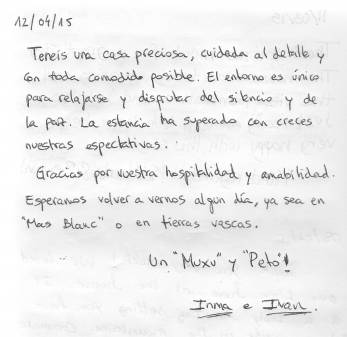 12/04/15
Teneis una casa preciosa, cuidada al detalle y
con toda comodida posible. El entorno es único
para relajarse y disfrutar del silencio y de
la paz. La estancia ha superado con creces
nuestras espectativas.
Gracias por vuestra hospitalidad y amabilidad.
Esperamos volver a vernos algun día, ya sea en
"Mas Blanc" o en tierras vascas.
Un "Muxu" y "Petó"!
Inma e Ivan.